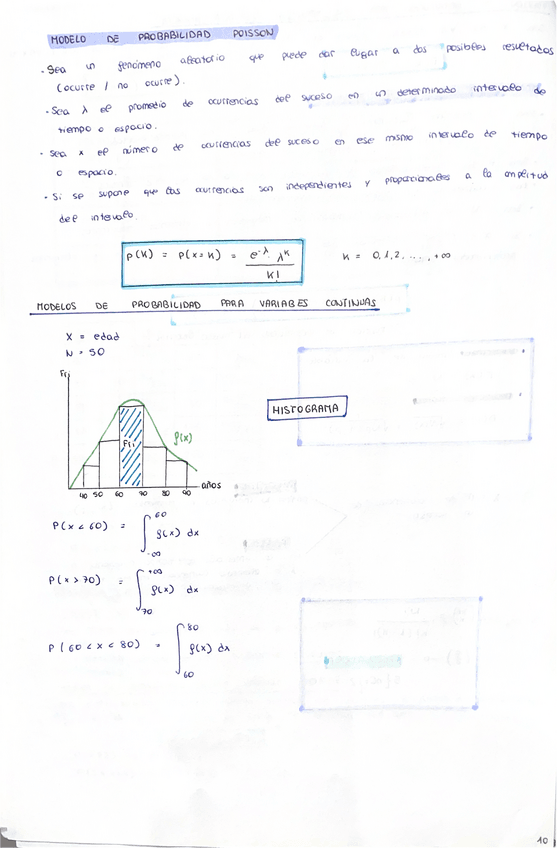 MODELO DE PROBABILIDAD POISSON
· Sea un fenómeno aleatorio que puede dar lugar a dos posibles resultados
(ocurre / no ocurre).
· Sea λ el promedio de ocurrencias del suceso en un determinado intervalo de
tiempo o espacio.
· Sea x el número de ocurrencias del suceso en ese mismo intervalo de tiempo
o espacio.
· Si se supone que las ocurrencias son independientes y proporcionales a la amplitud
del intervalo.
P(K) = P(x=K) = e^-λ · λ^K / K!    K = 0,1,2,...,+∞
MODELOS DE PROBABILIDAD PARA VARIABLES CONTINUAS
X = edad
N = 50
Fri
HISTOGRAMA
f(x)
Fri
40 50 60 70 80 90 años
P(x < 60) = ∫_{-∞}^{60} f(x) dx
P(x > 70) = ∫_{70}^{+∞} f(x) dx
P(60 < x < 80) = ∫_{60}^{80} f(x) dx
10